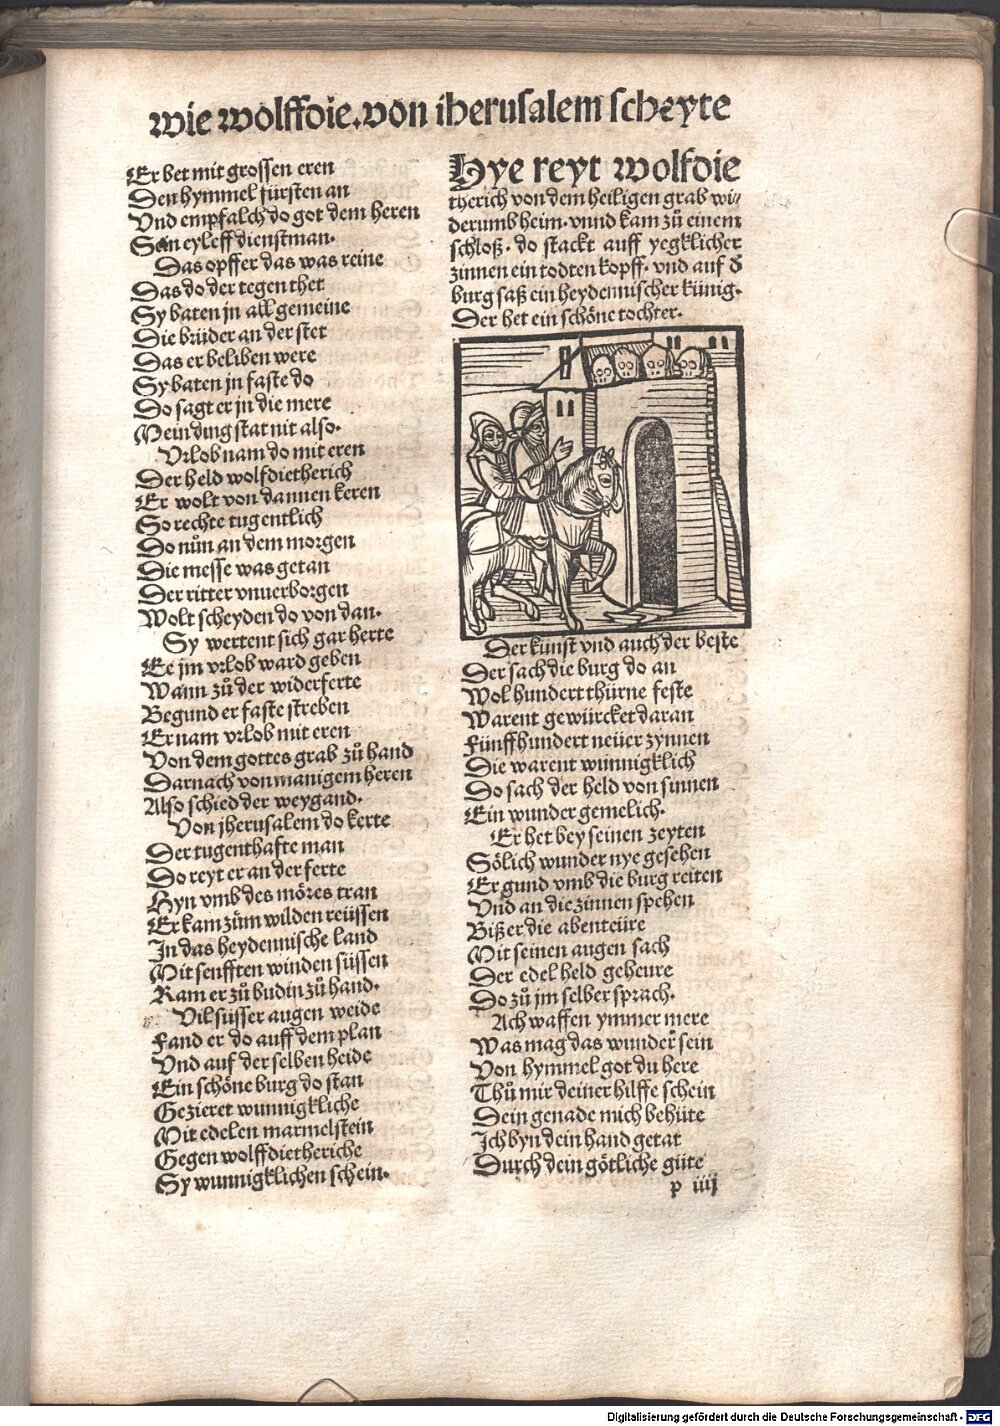 wie wolffdie. von iherusalem scheyte
Er bet mit grossen eren
Den hymmel fürsten an
Vnd empfalch do got dem heren
Sein eyleff dienstman.
Das opffer das was reine
Das do der tegen thet
Sy baten jn all gemeine
Die brüder an der stet
Das er beliben were
Sy baten jn faste do
Do sagt er jn die mere
Mein ding stat nit also.
Vrlob nam do mit eren
Der held wolfdietherich
Er wolt von dannen keren
So rechte tugentlich
Do nůn an dem morgen
Die messe was getan
Der ritter vnuerborgen
Wolt scheyden do von dan.
Sy wertent sich gar herte
Ee jm vrlob ward geben
Wann zů der widerferte
Begund er faste streben
Er nam vrlob mit eren
Von dem gottes grab zů hand
Darnach von manigem heren
Also schied der weygand.
Von jherusalem do kerte
Der tugenthafte man
Do reyt er an der ferte
Hyn vmb des möres tran
Er kam zům wilden reüssen
In das heydennische land
Mit senfften winden süssen
Kam er zů budin zů hand.
Vil süsser augen weide
Fand er do auff dem plan
Vnd auf der selben heide
Ein schöne burg do stan
Gezieret wunnigkliche
Mit edelen marmelstein
Gegen wolffdietheriche
Sy wunnigklichen schein.
Hye reyt wolfdie
therich von dem heiligen grab wi/
derumb heim. vnnd kam zů einem
schloß. do stackt auff yegklicher
zinnen ein todten kopff. vnd auf d̕
burg saß ein heydennischer künig.
Der het ein schöne tochter.
Der künst vnd auch der beste
Der sach die burg do an
Wol hundert thürne feste
Warent gewürcket daran
Fünffhundert neüer zynnen
Die warent wunnigklich
Do sach der held von sinnen
Ein wunder gemelich.
Er het bey seinen zeyten
Sölich wunder nye gesehen
Er gund vmb die burg reiten
Vnd an die zinnen spehen
Biß er die abenteüre
Mit seinen augen sach
Der edel held geheure
Do zů jm selber sprach.
Ach waffen ymmer mere
Was mag das wunder sein
Von hymmel got du here
Thů mir deiner hilffe schein
Dein genade mich behüte
Ich byn dein hand getat
Durch dein götliche güte
p iiij
Digitalisierung gefördert durch die Deutsche Forschungsgemeinschaft - DFG